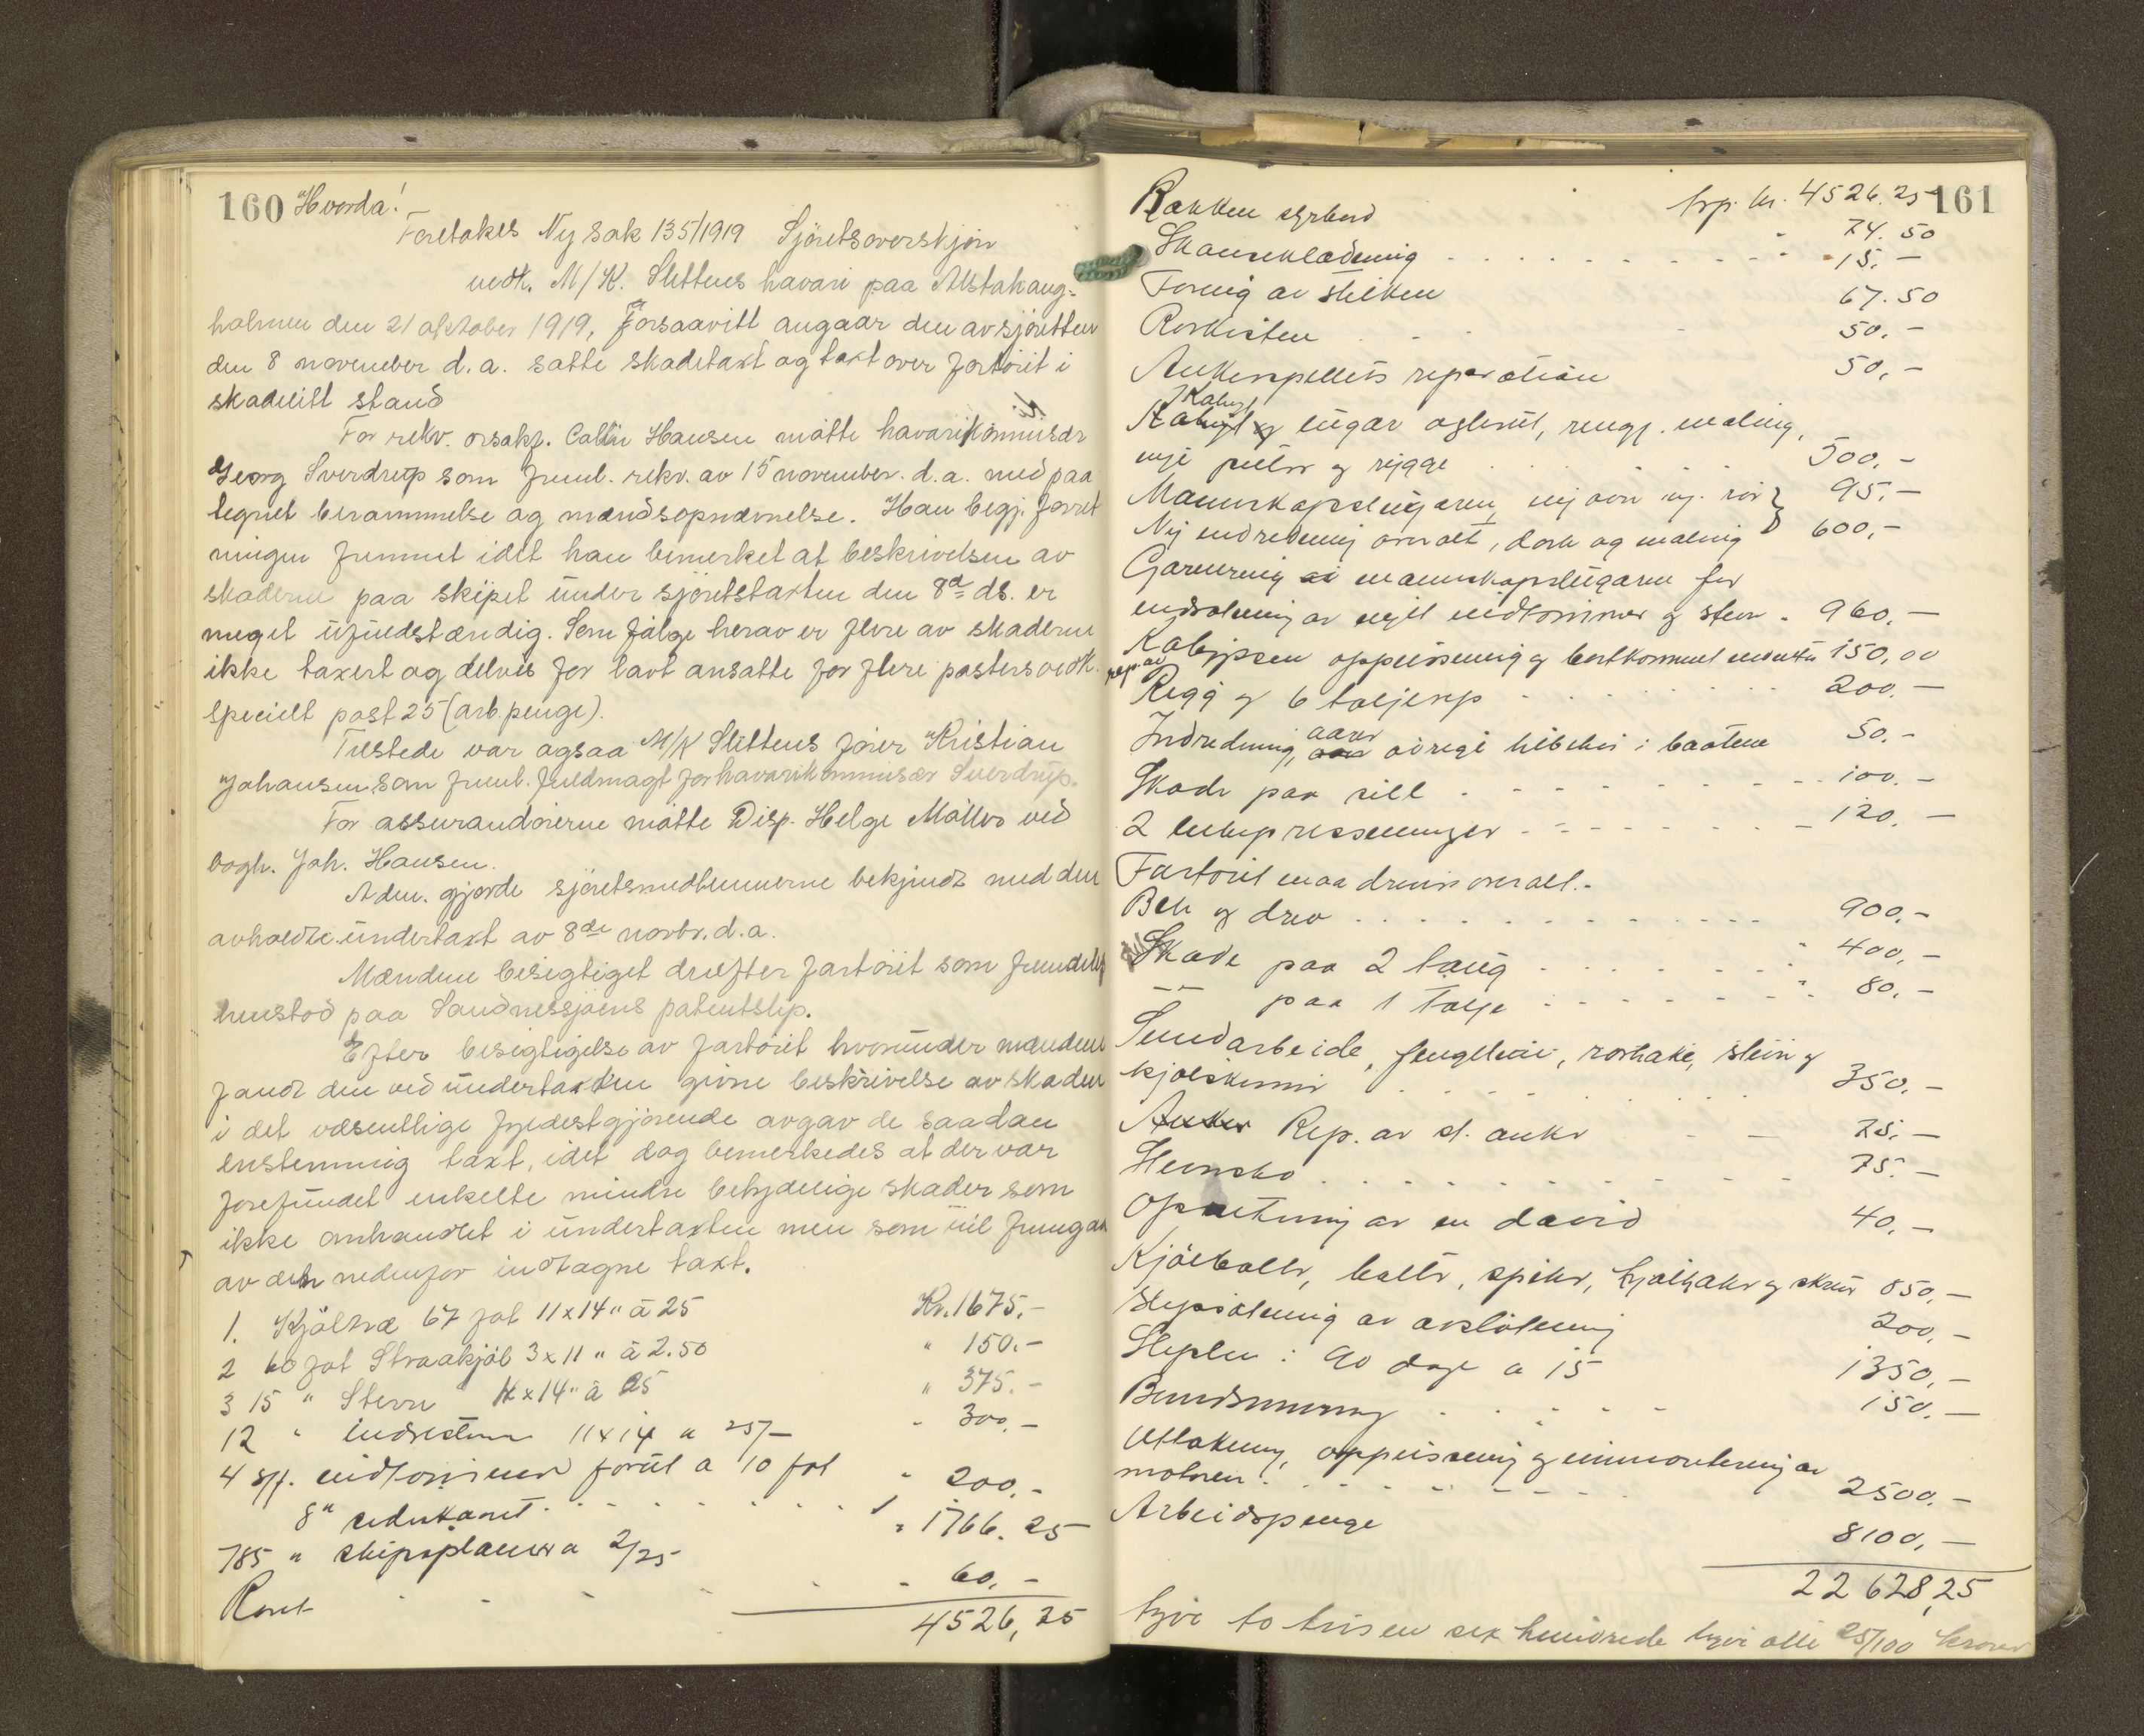 160 Hvorda!
Foretokes Ny sak 135/1919 Sjöretsoverskjön
vedk. M/K. Slettens havari paa Alstahaug-
holmen den 21 oktober 1919, Forsaavitt angaar den av sjöretten
den 8 november d.a. satte skadetaxt og taxt over fartöiet i
skadeitt stand
For rekv. orsakf. Collin Hansen mötte havarikommisær
Georg Sverdrup som freml. rekv. av 15 november. d.a. med paa
tegnet berammelse og mændsopnævnelse. Han begj. forret
ningen fremmet idet han bemerket at beskrivelsen av
skaderne paa skipet under sjöretstaxten den 8de ds. er
meget ufuldstændig. Som fölge herav er flere av skaderne
ikke taxert og delvis for lavt ansatte for flere posters vedk.
specielt post 25 (arb. penge).
Tilstede var ogsaa M/K Slettens förer Kristian
Johansen, som freml. fuldmagt for havarikommisær Sverdrup.
For assurandörerne mötte Disp. Helge Möller ved
bogh. Joh. Hansen.
Adm. gjorde sjöretsmedlemmerne bekjendt med den
avholdte undertaxt av 8de novbr. d.a.
Mændene besigtiget derefter fartöiet som fremdeles
henstod paa Sandnessjöens patentslip.
Efter besigtigelse av fartöiet hvorunder mændene
fandt den ved undertaxten givne beskrivelse av skaden
i det væsentlige fyldestgjörende avgav de saadan
enstemmig taxt, idet dog bemerkedes at der var
forefundet enkelte mindre betydelige skader som
ikke omhandlet i undertaxten men som vil fremgaa
av den nedenfor indtagne taxt.
1. Kjöltræ 67 fot 11x14" à 25 Kr. 1675.-
2 60 fot Straakjöl 3x11 " à 2.50 " 150.-
3 15 " Stevn 11x14" à 25 " 375.-
12 " indrestevn 11x14 a 25/- " 300.-
4 st. bundtommer forut a 10 fot " 200.-
8"
785 " skipsplanker a 2/25 " 1766.25
Roret " 60.-
4526,25
161
Rækken styrbord trp. kr. 4526.25
Skanseklædning 74.50
Foring av stilken 15.-
Rorkisten 67.50
50.-
Ankerspillets reparation 50.-
Kahyt
lugar agterut, rengj. maling,
nye puter og rygge 500.-
Mannskapslugaren, ny ovn ny. rör 95.-
Ny indredning overalt, dork og maling 600.-
Garnering i mannskapslugaren for
indsætning av nyt bundtommer og stevn 960.-
rep. av
Kabyssen oppussning og bortkommet inventar 150,00
Rigg og 6 taljerep 200.-
Indredning, aarer övrige tilbehör i baatene 50.-
Skade paa seil 100.-
2 lukepresseninger 120.-
Fartöiet maa drives overalt.-
Bek og drev 900.-
Skade paa 2 taug " 400.-
-"- paa 1 Talje " 80.-
Smedarbeide, rorhake, stevn og
kjölskinner 350.-
Rep. av st. anker 75.-
Stevnsko 75.-
Opsætning av en david 40.-
Kjölbolter, bolter, spiker, og skruer 850.-
Slepsætning av avslöttning 200.-
Slepleie: 90 dage a 15 1350.-
Bundsmurning 150.-
Uttakning, oppussning og inmontering av
motoren 2500.-
Arbeidspenge 8100.-
22628,25
tyve to tusen sex hundrede tyve otte 25/100 kroner